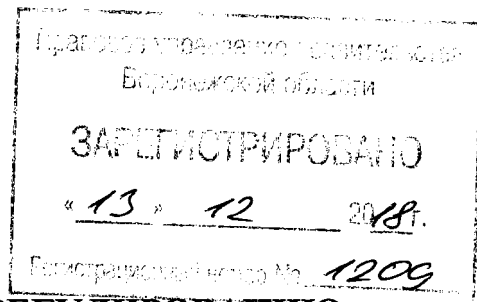 Правовое управление правительства
Воронежской области
ЗАРЕГИСТРИРОВАНО
« 13 » 12 2018г.
Регистрационный номер № 1209